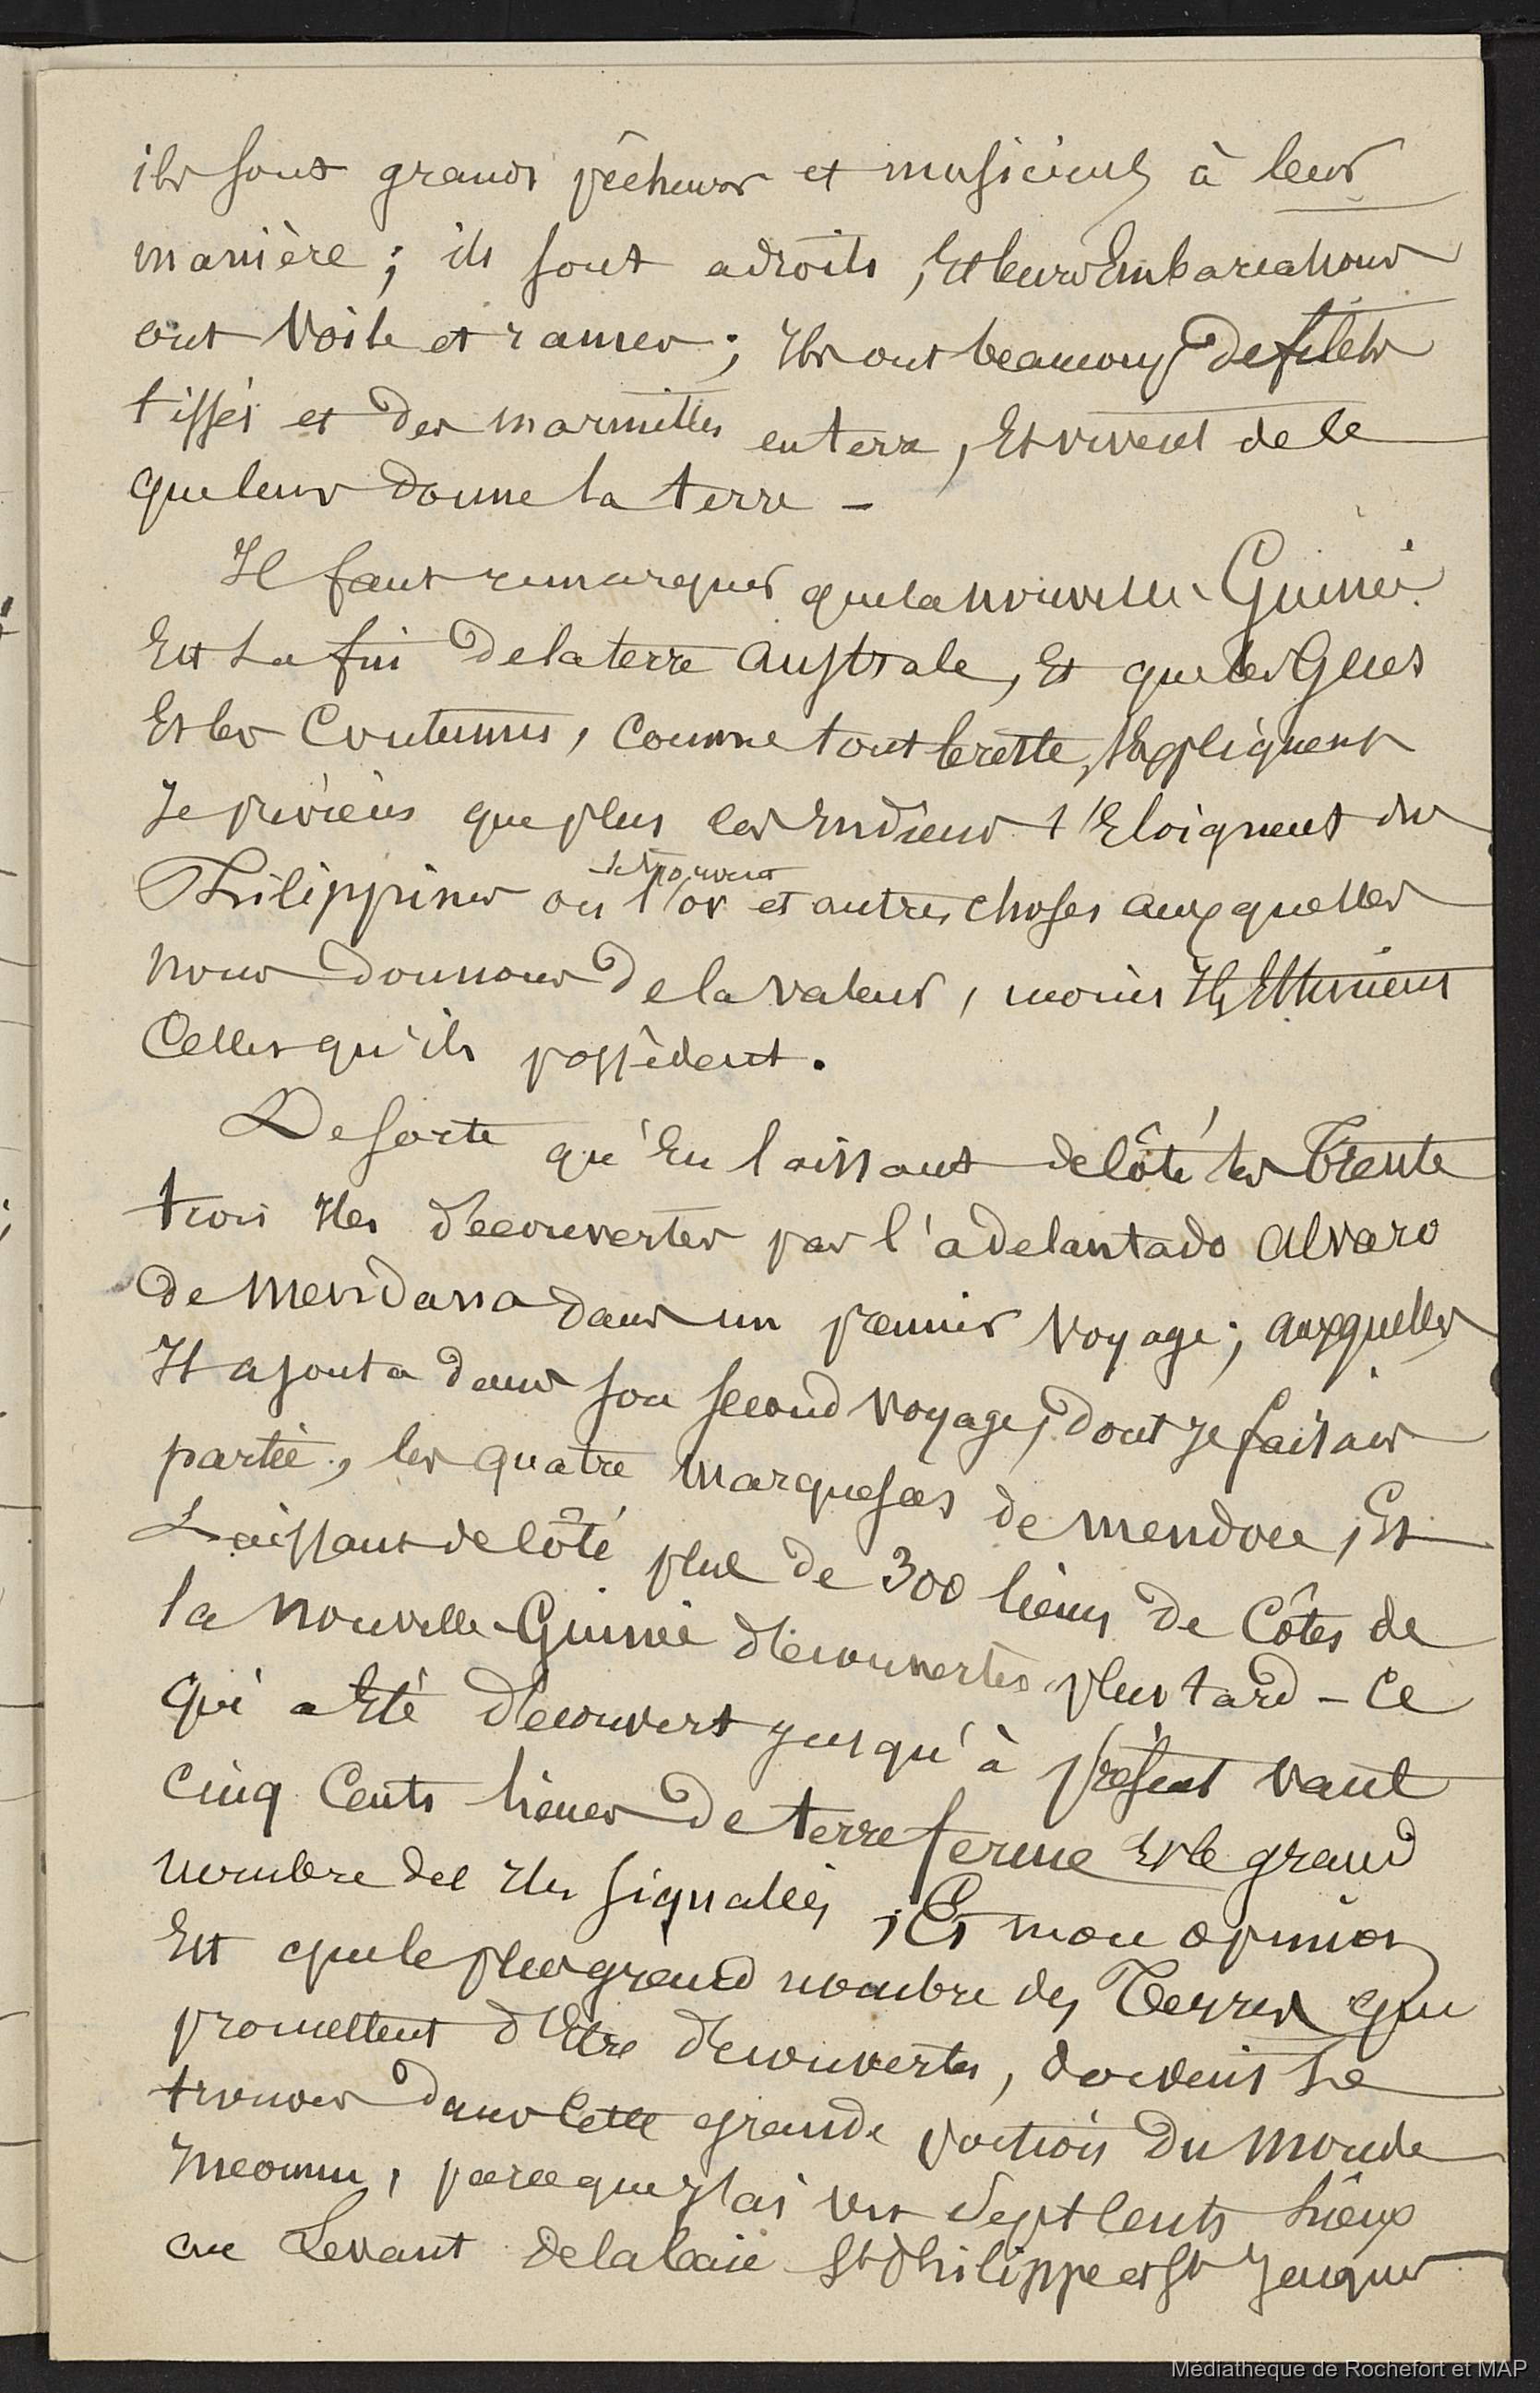 ils sont grands pêcheurs et musiciens à leur
manière ; ils sont adroits, Et leurs Embarcations
ont Voile et rames ; Ils ont beaucoup de filets
tissés et des marmittes en terre, Et vivent de ce
que leur donne la terre -
Il faut remarquer que la nouvelle-Guinée
Est La fin de la terre Australe, Et que les Gens
Et les Coutumes, Comme tout le reste, s'Expliquent
Je préviens que plus les Indiens s'Eloignent des
Philippines où se trouvent
l'or et autres choses auxquelles
nous donnons de la valeur, moins Ils Estiment
Celles qu'ils possèdent.
De sorte qu'En laissant de côté les Trente
trois Iles découvertes par l'adelantado Alvaro
de Mendana dans un premier Voyage ; auxquelles
Il ajouta dans son second Voyage, dont je faisais
partie, les quatre Marquesas de Mendoce, Et
Laissant de côté plus de 300 lieues de Côtes de
la Nouvelle-Guinée découvertes plus tard - Ce
qui a Eté découvert jusqu'à présent vaut
Cinq Cents lieues de terre ferme Et le grand
nombre des Iles signalées ; Et mon opinion
Est que le plus grand nombre des Terres que
promettent d'Etre découvertes, doivent se
trouver dans Cette grande portion du Monde
Inconnu, parceque j'ai vu Sept Cents Lieux
au Levant de la baie St Philippe et St Jacques
Médiathèque de Rochefort et MAP